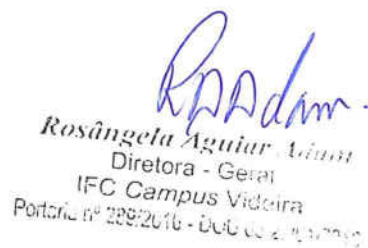 RAAdam.
Rosângela Aguiar Adam
Diretora - Geral
IFC Campus Videira
Portaria nº 289/2016 - DOU de